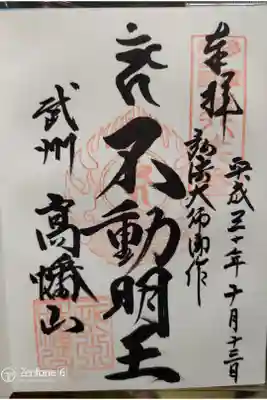 奉拝
平成三十年十月十三日
弘法大師御作
不動明王
武州 高幡山
Zenfone 6